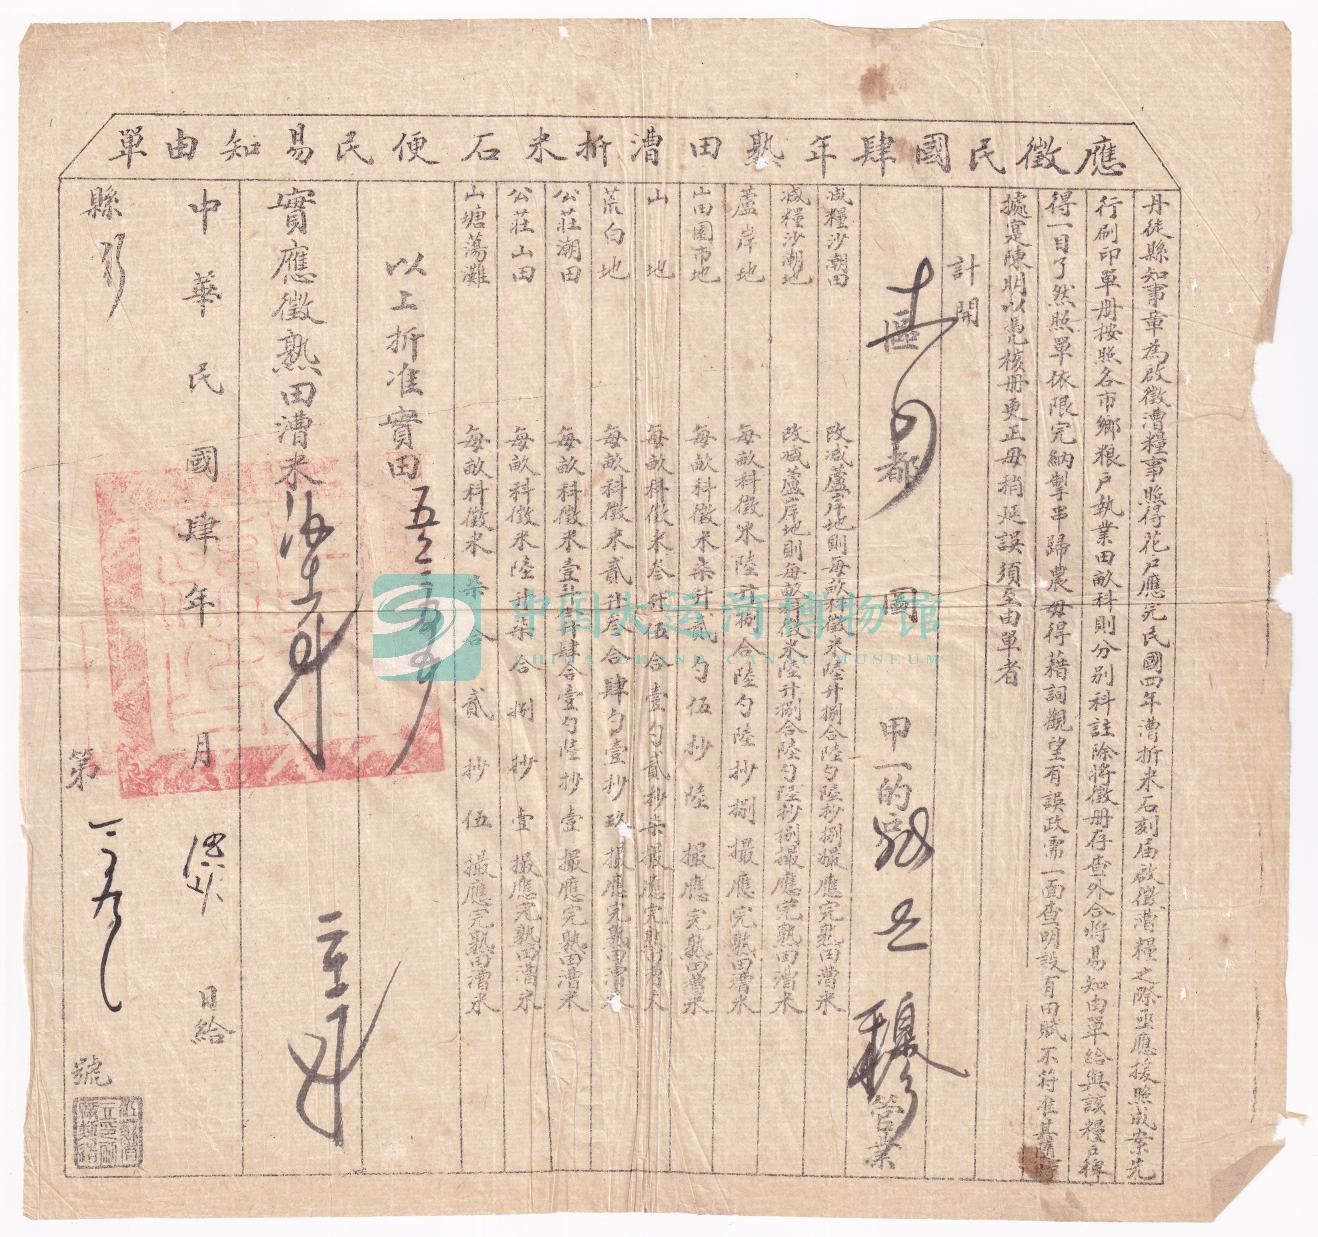 應徵民國肆年熟田漕折米石便民易知由單
丹徒縣知事章為啟徵漕糧事照得花戶應完民國四年漕折米石刻屆啟徵漕糧之際亟應援照成案先
行刷印單册按照各市鄉粮户執業田畝科則分別科註除將徵册存查外合將易知由單給與該糧户稗
得一目了然照單依限完納掣串歸農毋得藉詞觀望有誤政需一面查明設有田賦不符准其隨時
據寔陳明以憑核册更正毋稍延誤須至由單者
計開
區 都 圖 甲一的 營業
減糧沙潮田 改減蘆岸地則每畝科徵米陸升捌合陸勺陸抄捌撮應完熟田漕米
減糧沙潮地 改減蘆岸地則每畝科徵米陸升捌合陸勺陸抄捌撮應完熟田漕米
蘆岸地 每畝科徵米陸升捌合陸勺陸抄捌撮應完熟田漕米
山田園市地 每畝科徵米柒升貳勺伍抄陸撮應完熟田漕米
山地 每畝科徵米叁升伍合壹勺貳抄柒撮應完熟田漕米
荒白地 每畝科徵米貳升叁合肆勺壹抄玖撮應完熟田漕米
公莊潮田 每畝科徵米壹升肆合壹勺陸抄壹撮應完熟田漕米
公莊山田 每畝科徵米陸升柒合捌抄壹撮應完熟田漕米
山塘蕩灘 每畝科徵米柒合貳抄伍撮應完熟田漕米
以上折准實田
實應徵熟田漕米
中華民國肆年 月 日給
縣 第 號
中国大运河博物馆
CHINA GRAND CANAL MUSEUM